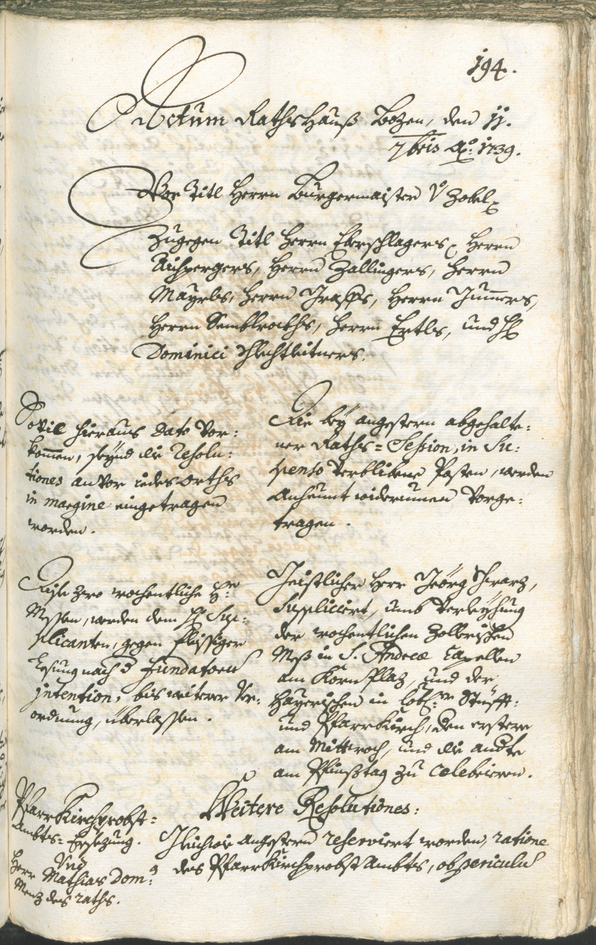 194.
Actum Rathshauß Bozen, den 11.
7bris Ao: 1739.
Vor Titl Herrn Burgermaister V Zobel
Zugegen Titl Herrn Eberschlagers, Herrn
Aichpergers, Herrn Zallingers, Herrn
Mayrls, Herrn Graffs, Herrn Jumers,
Herrn Sembleroths, Herrn Ertls, und H
Dominici Schlechtleitners.
Sovil hieraus dato vor:
komen, seynd die resolu:
tiones anvor iedes orths
in margine eingetragen
worden.
Die bey angestern abgehalte:
ner Raths-Session, in Su:
spenso verblibene Posten, werden
anheunt widerumen vorge:
tragen.
Dise zwo wochentliche H:
Messen, werden dem H Sup:
plicanten, gegen fleissiger
Lesung nach der Fundatorn
intention, bis weiterer Ver:
ordnung, überlassen.
Geistlicher Herr Geörg Schwarz,
Suppliciert, umb Verleyhung
der wochentlichen Zollerischen
Meß in S. Andreæ Capellen
am Korn Plaz, und der
Hayerischen in lobl: Stüfft-
und Pfarrkirch, den erstern
am Mittwoch, und die andte
am Pfinstag zu celebriren.
Weitere Resolutiones:
PfarrKirchprobst-
Ambts-Ersezung.
Herr Mathias Dom:
Menz des Raths.
Gleichwie angestern reserviert worden, ratione
des PfarrKirchprobst Ambts, ob periculum